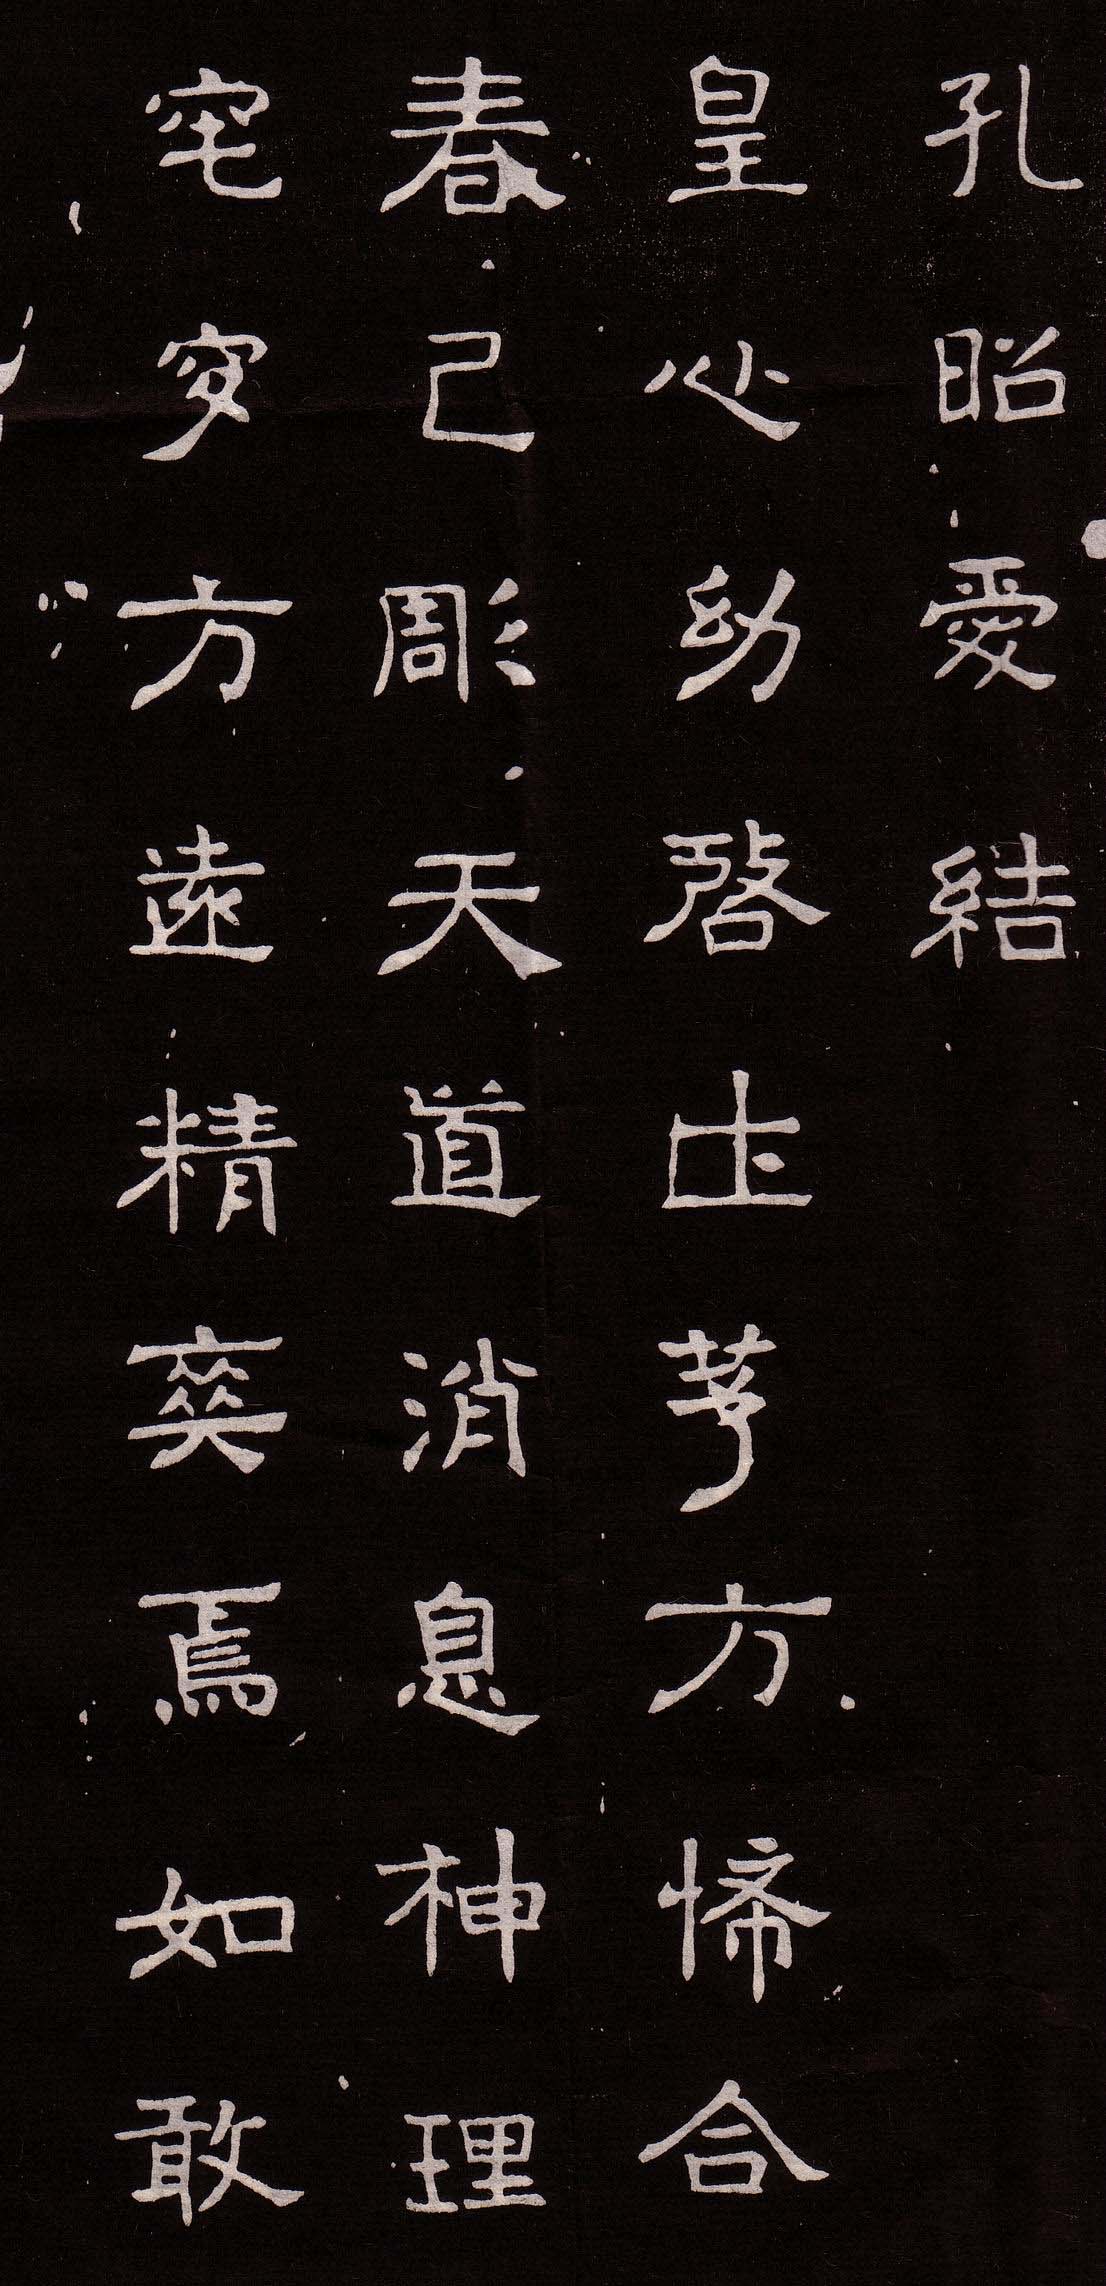 孔昭愛結
皇心幼啓茅方悕合
春己彫天道消息神理
窀穸方遠精爽焉如敢